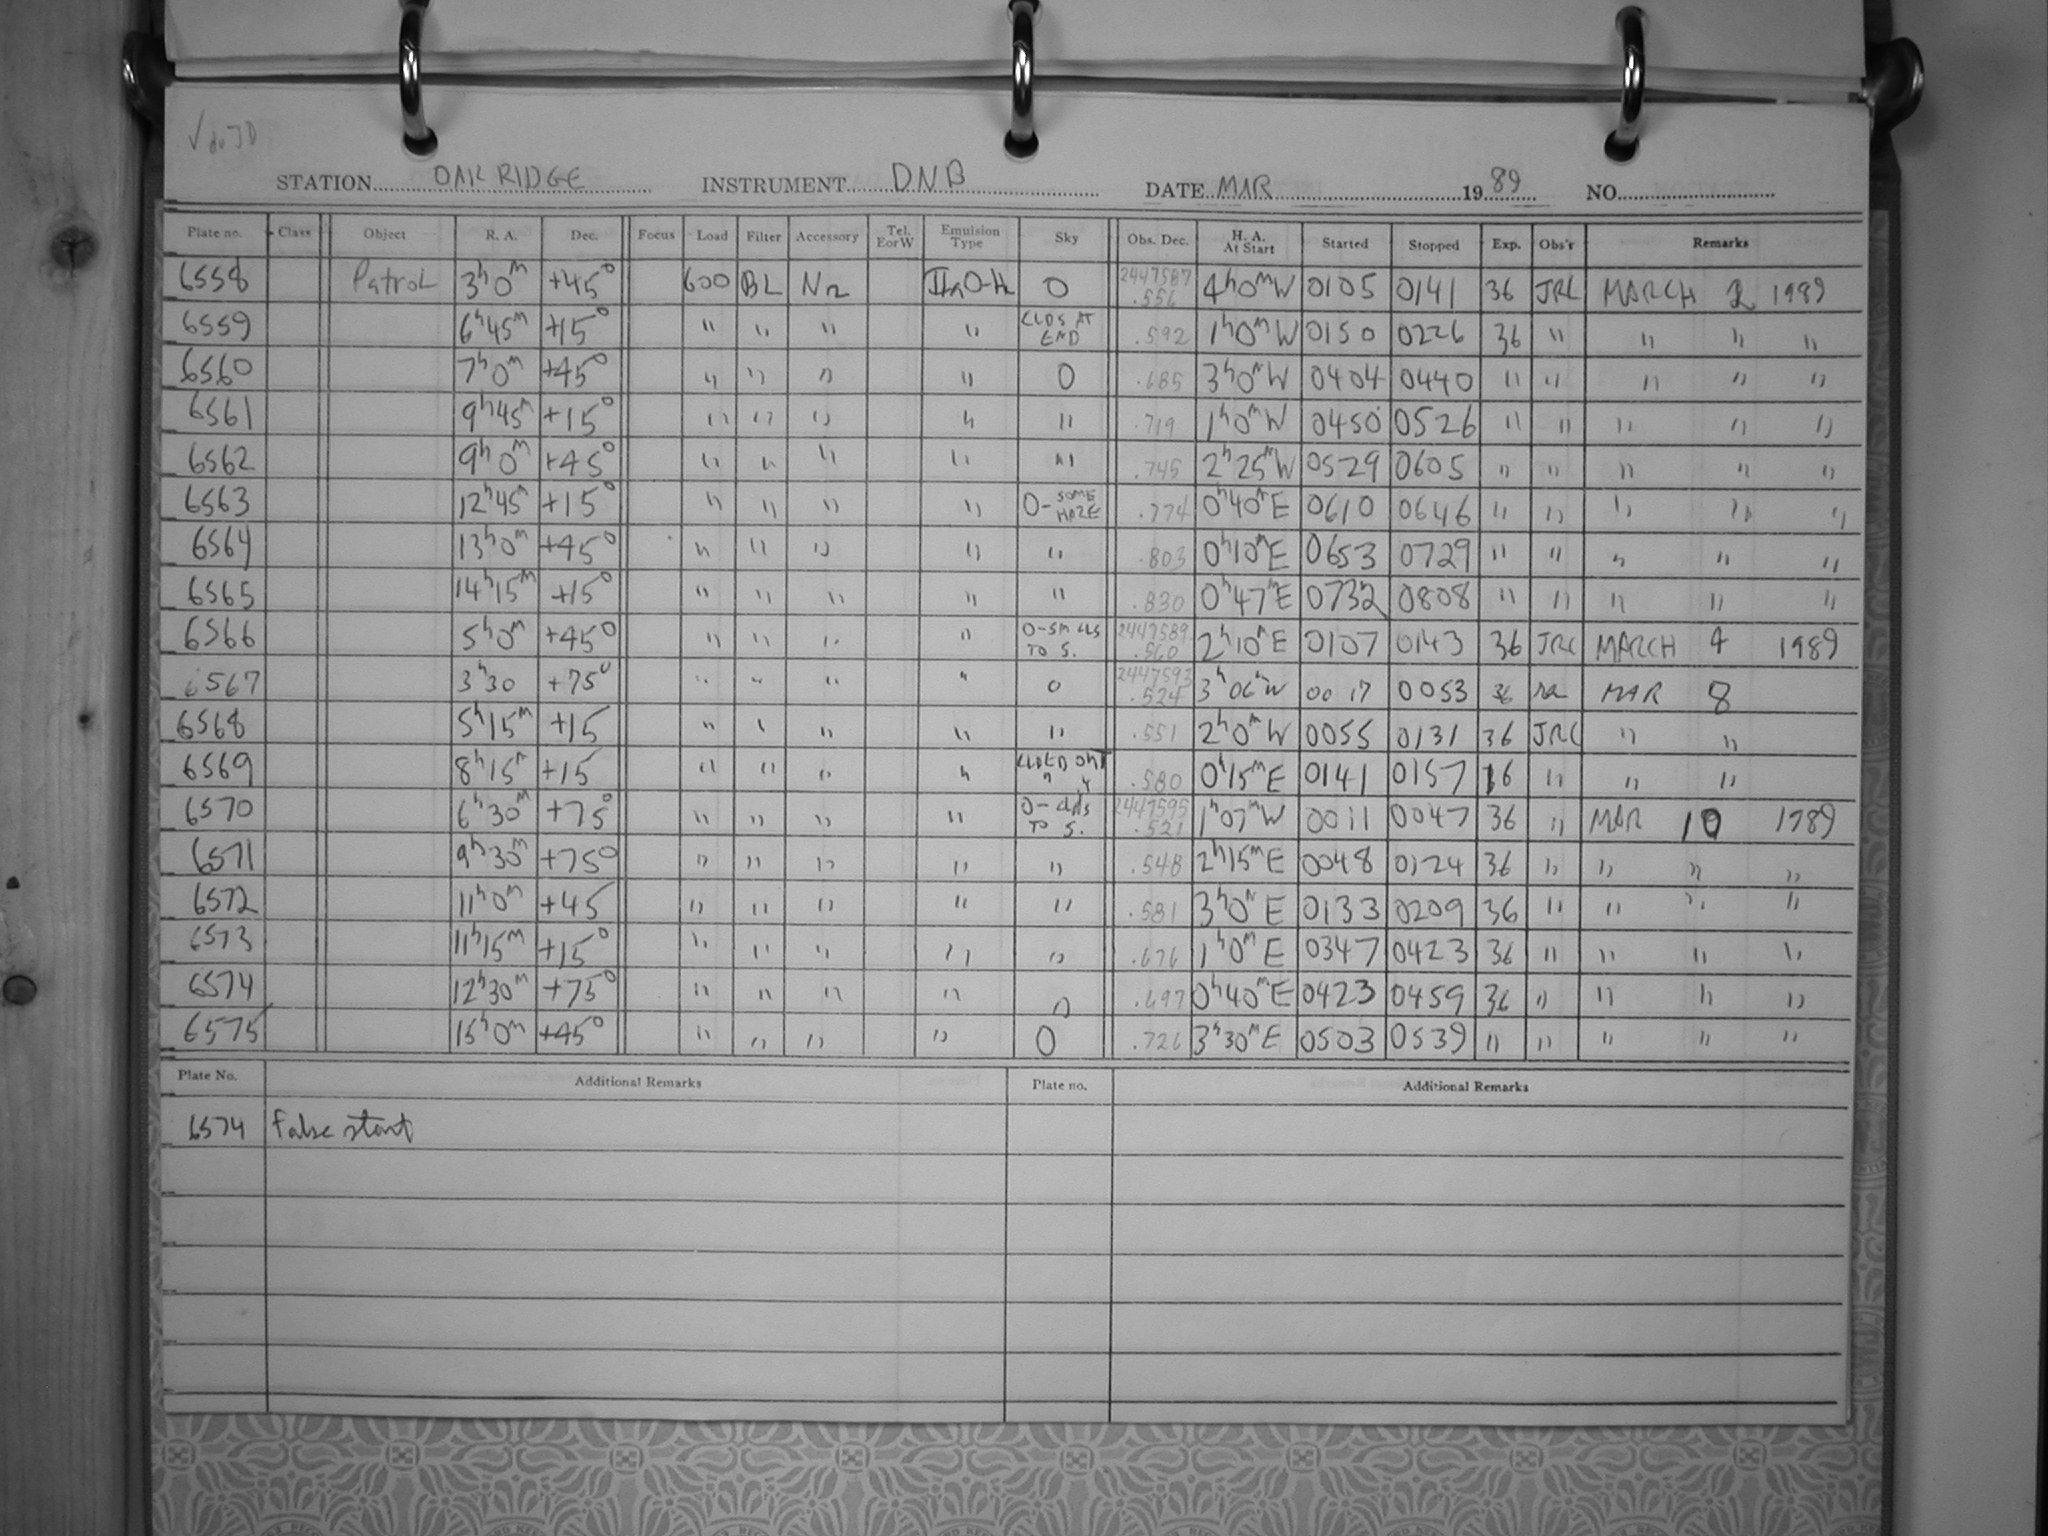 √ du JD
STATION OAK RIDGE INSTRUMENT DNB DATE MAR 1989 NO.
Plate no. Class Object R. A. Dec. Focus Load Filter Accessory Tel. E or W Emulsion Type Sky Obs. Dec. H. A. At Start Started Stopped Exp. Obs'r Remarks
6558 Patrol 3h 0m +45° 600 BL N2 IIaO-H 0 2447587 .556 4h 0m W 0105 0141 36 JRC MARCH 2 1989
6559 6h 45m +15° " " " " CLDS AT END .592 1h 0m W 0150 0226 36 " " " "
6560 7h 0m +45° " " " " 0 .685 3h 0m W 0404 0440 " " " " "
6561 9h 45m +15° " " " " " .719 1h 0m W 0450 0526 " " " " "
6562 9h 0m +45° " " " " " .745 2h 25m W 0529 0605 " " " " "
6563 12h 45m +15° " " " " 0-SOME HAZE .774 0h 40m E 0610 0646 " " " " "
6564 13h 0m +45° " " " " " .803 0h 10m E 0653 0729 " " " " "
6565 14h 15m +15° " " " " " .830 0h 47m E 0732 0808 " " " " "
6566 5h 0m +45° " " " " 0-SM CLS TO S. 2447589 .560 2h 10m E 0107 0143 36 JRC MARCH 4 1989
6567 3h 30 +75° " " " " 0 2447593 .524 3h 06m W 0017 0053 36 MAR 8
6568 5h 15m +15 " " " " " .551 2h 0m W 0055 0131 36 JRC " "
6569 8h 15m +15 " " " " CLDED OUT .580 0h 15m E 0141 0157 16 " " "
6570 6h 30m +75° " " " " 0-clds TO S. 2447595 .521 1h 07m W 0011 0047 36 " MAR 10 1989
6571 9h 30m +75° " " " " " .548 2h 15m E 0048 0124 36 " " " "
6572 11h 0m +45 " " " " " .581 3h 0m E 0133 0209 36 " " " "
6573 11h 15m +15° " " " " " .676 1h 0m E 0347 0423 36 " " " "
6574 12h 30m +75° " " " " " .697 0h 40m E 0423 0459 36 " " " "
6575 15h 0m +45° " " " " 0 .726 3h 30m E 0503 0539 " " " " "
Plate No. Additional Remarks Plate no. Additional Remarks
6574 False start